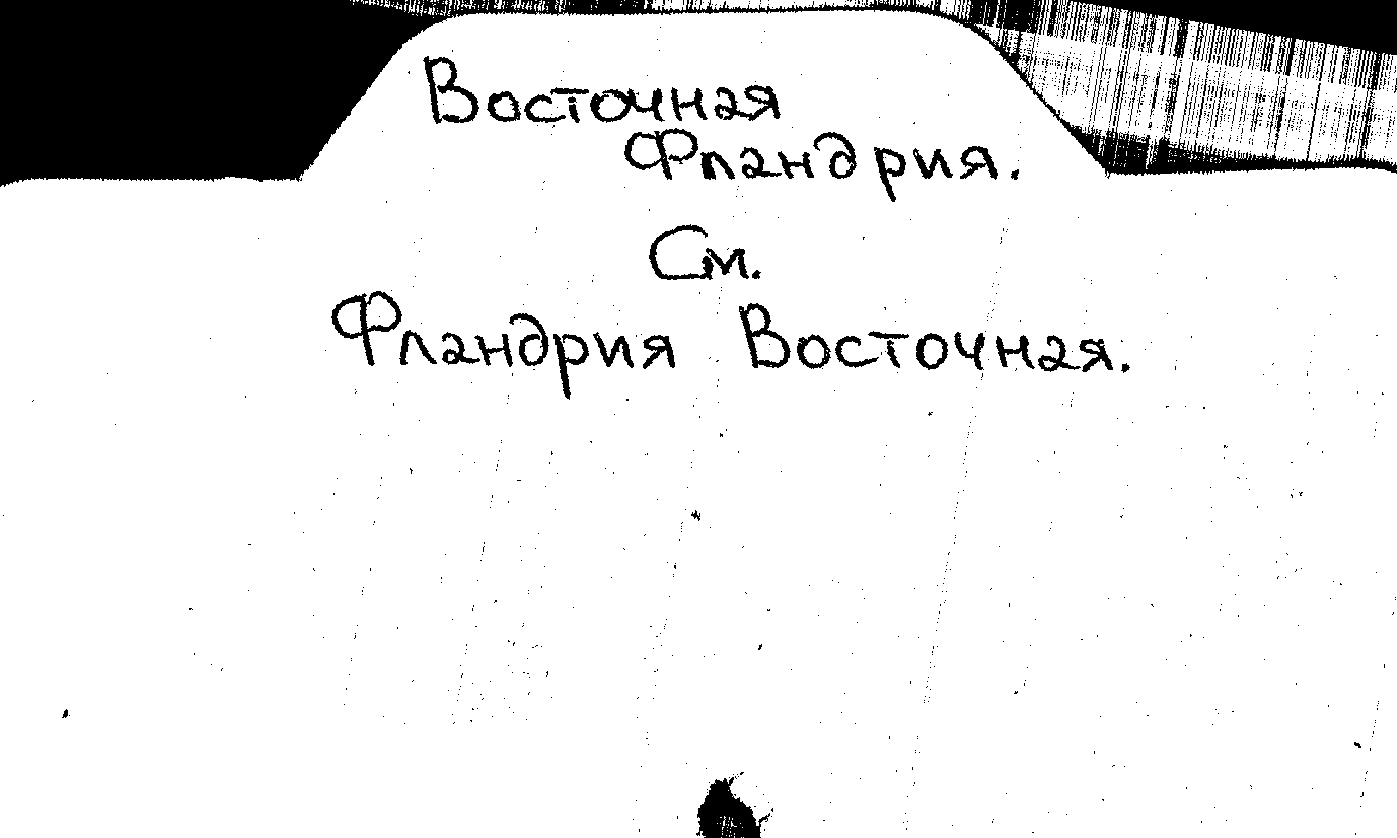 Восточная
Фландрия.
См.
Фландрия Восточная.